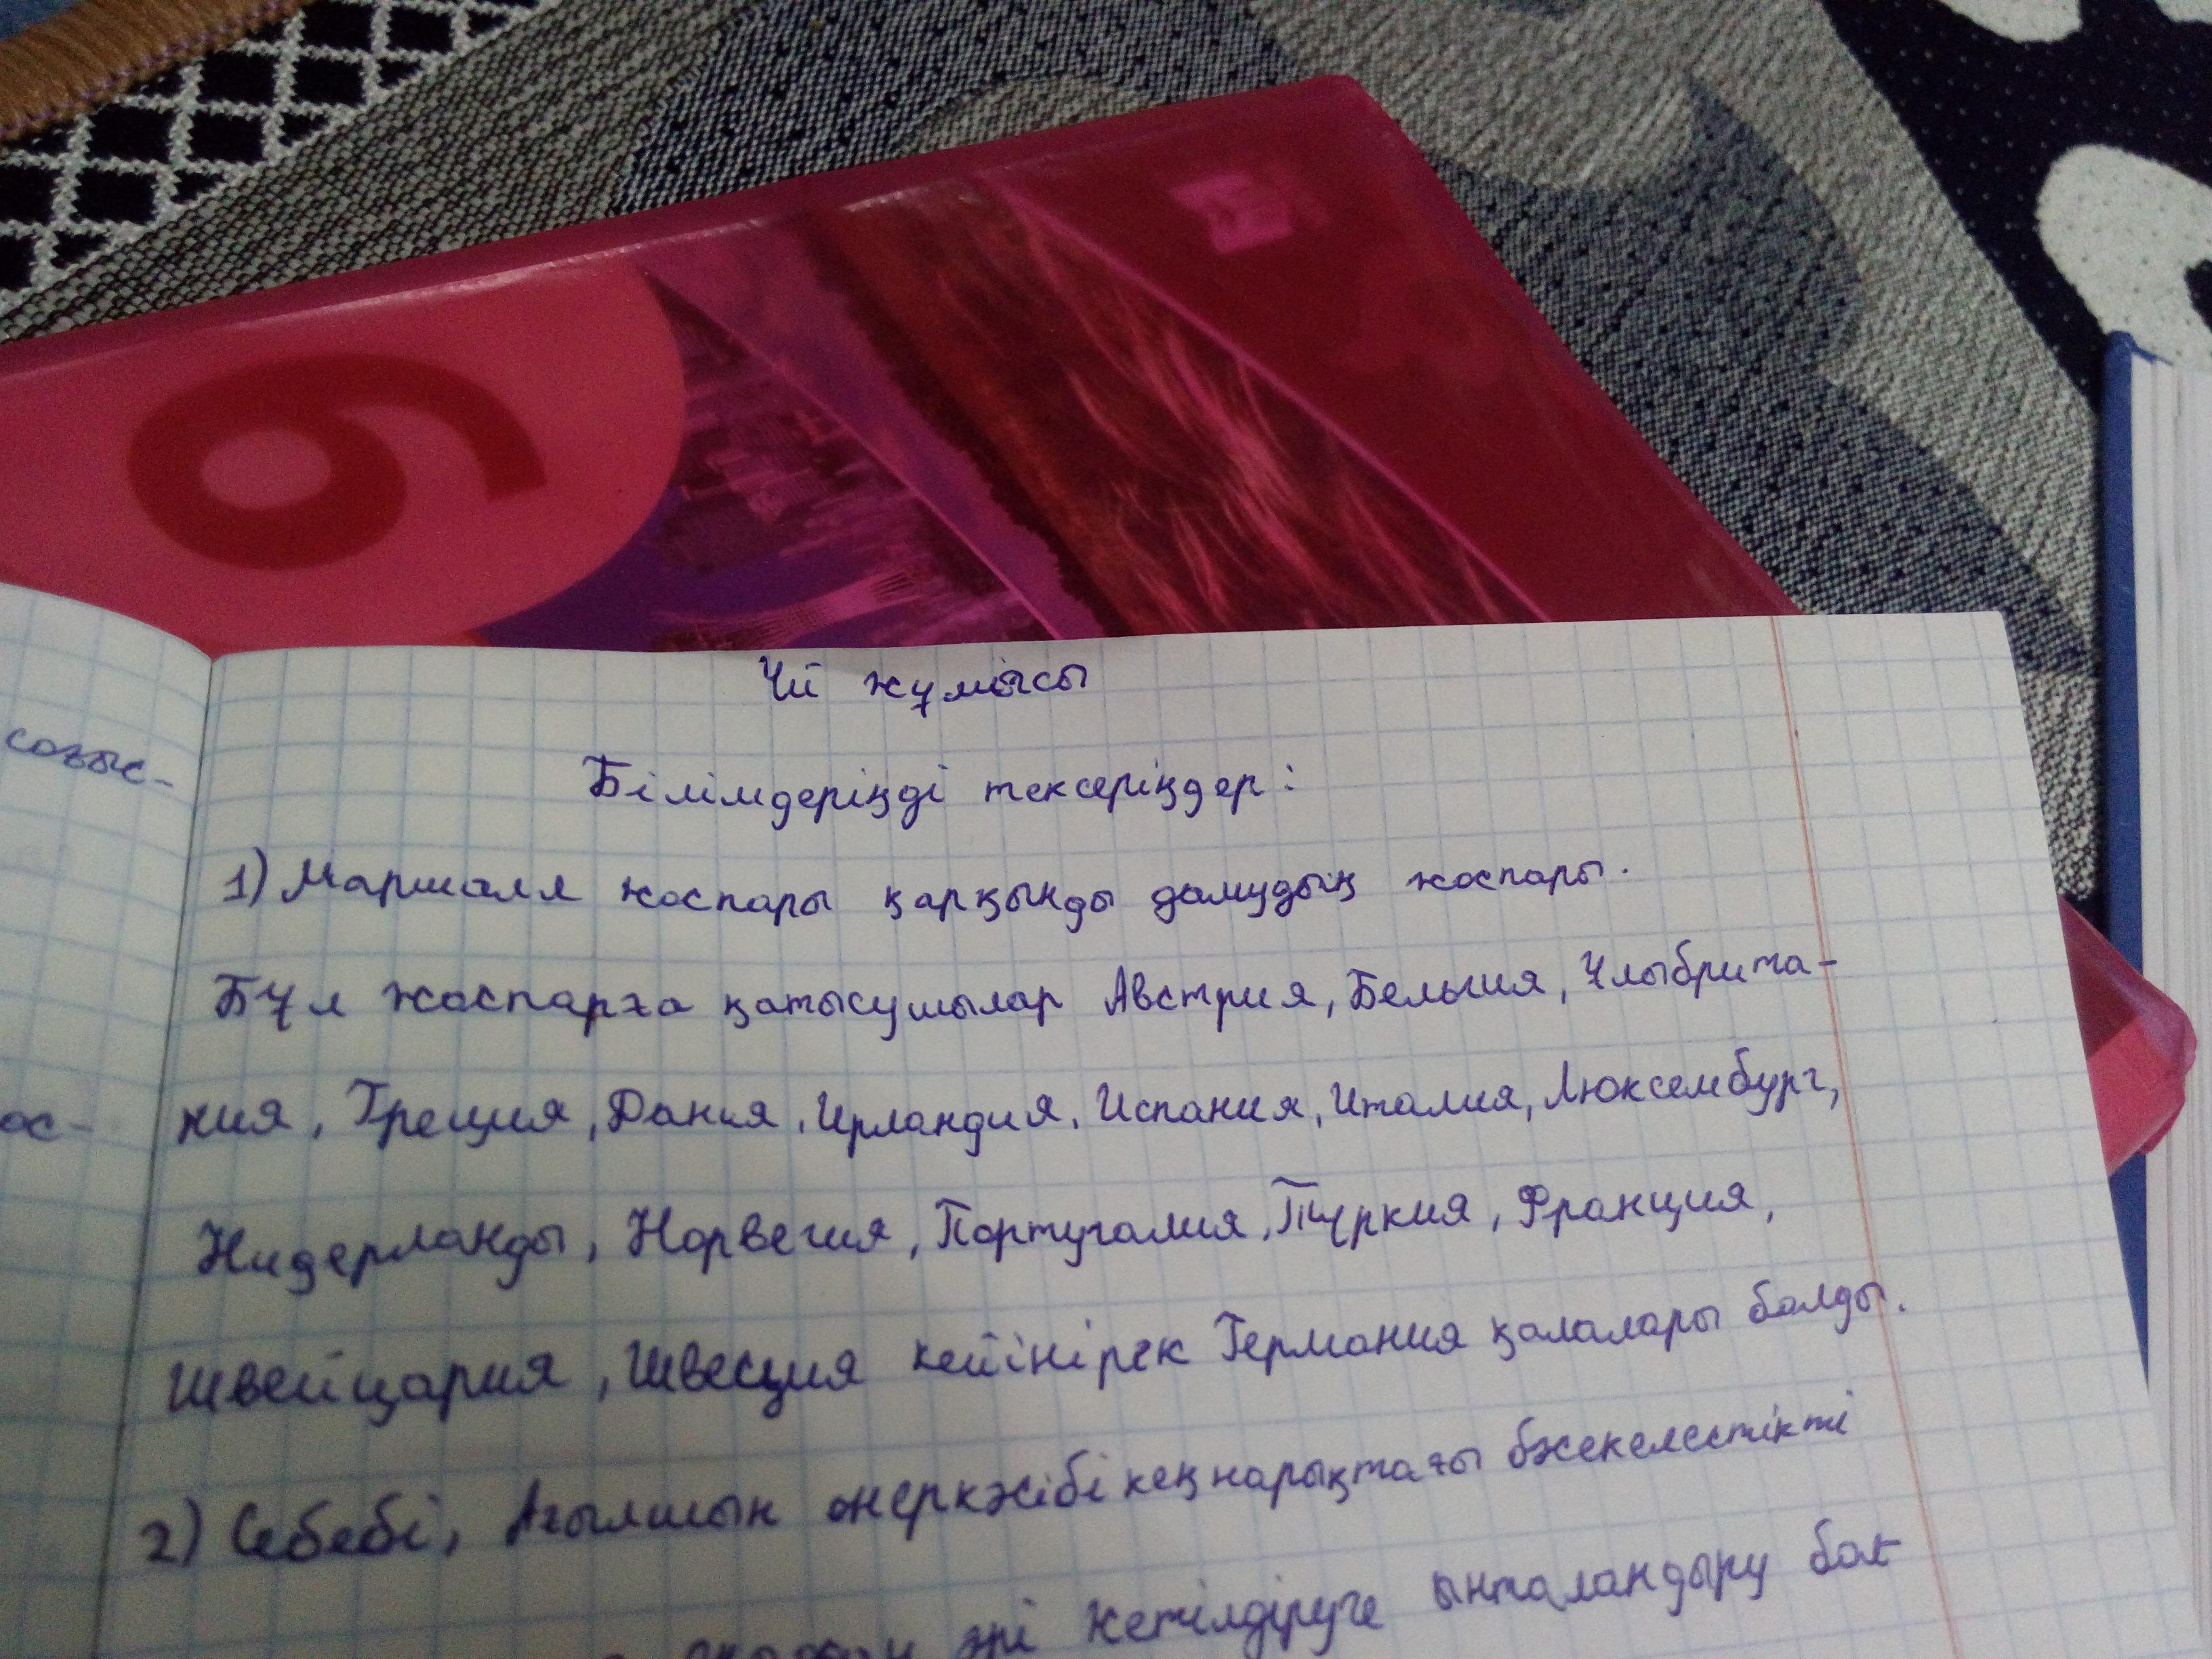 6
соғыс-
ос-
Үй жұмысы
Біліміңдеріңді тексеріңдер:
1) Маршалл жоспары қарқынды дамудың жоспары.
Бұл жоспарға қатысушылар Австрия, Бельгия, Ұлыбрита-
ния, Греция, Дания, Ирландия, Испания, Италия, Люксембург,
Нидерланды, Норвегия, Португалия, Түркия, Франция,
Швейцария, Швесция кейінірек Германия қалалары болды.
2) Себебі, Ағылшын өнеркәсібі кең нарықтағы бәсекелестікті
әрі жетілдіруге ынталандыру бол